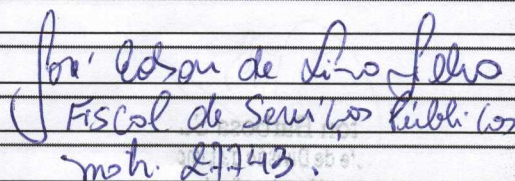 José Edson de Lira Filho
Fiscal de Serviços Públicos
matr. 27743.